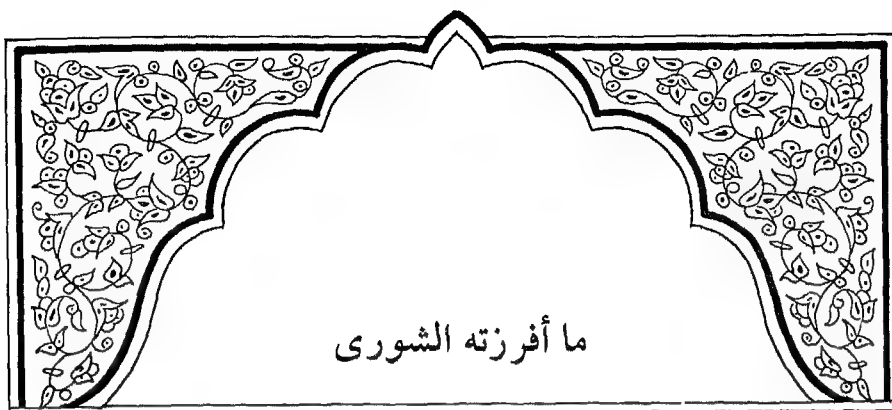 ما أفرزته الشورى